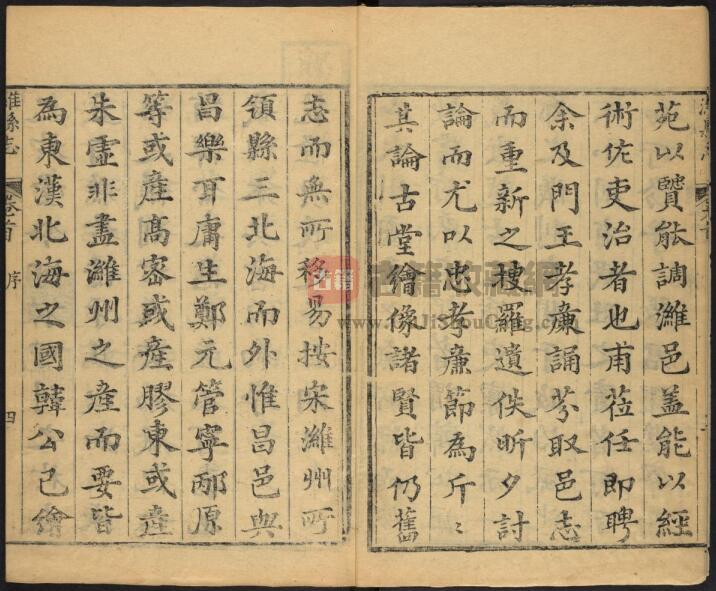 苑以賢能調濰邑盖能以經
術佐吏治者也甫莅任即聘
余及門王孝廉誦芬取邑志
而重新之搜羅遺佚昕夕討
論而尤以忠孝廉節為斤〻
其論古堂繪像諸賢皆仍舊
志而無所移易按宋濰州所
領縣三北海而外惟昌邑與
昌樂耳庸生鄭元管寧邴原
等或產髙密或產膠東或產
朱虛非盡濰州之產而要皆
為東漢北海之國韓公已繪
濰縣志
卷首
序
四
古籍收藏網